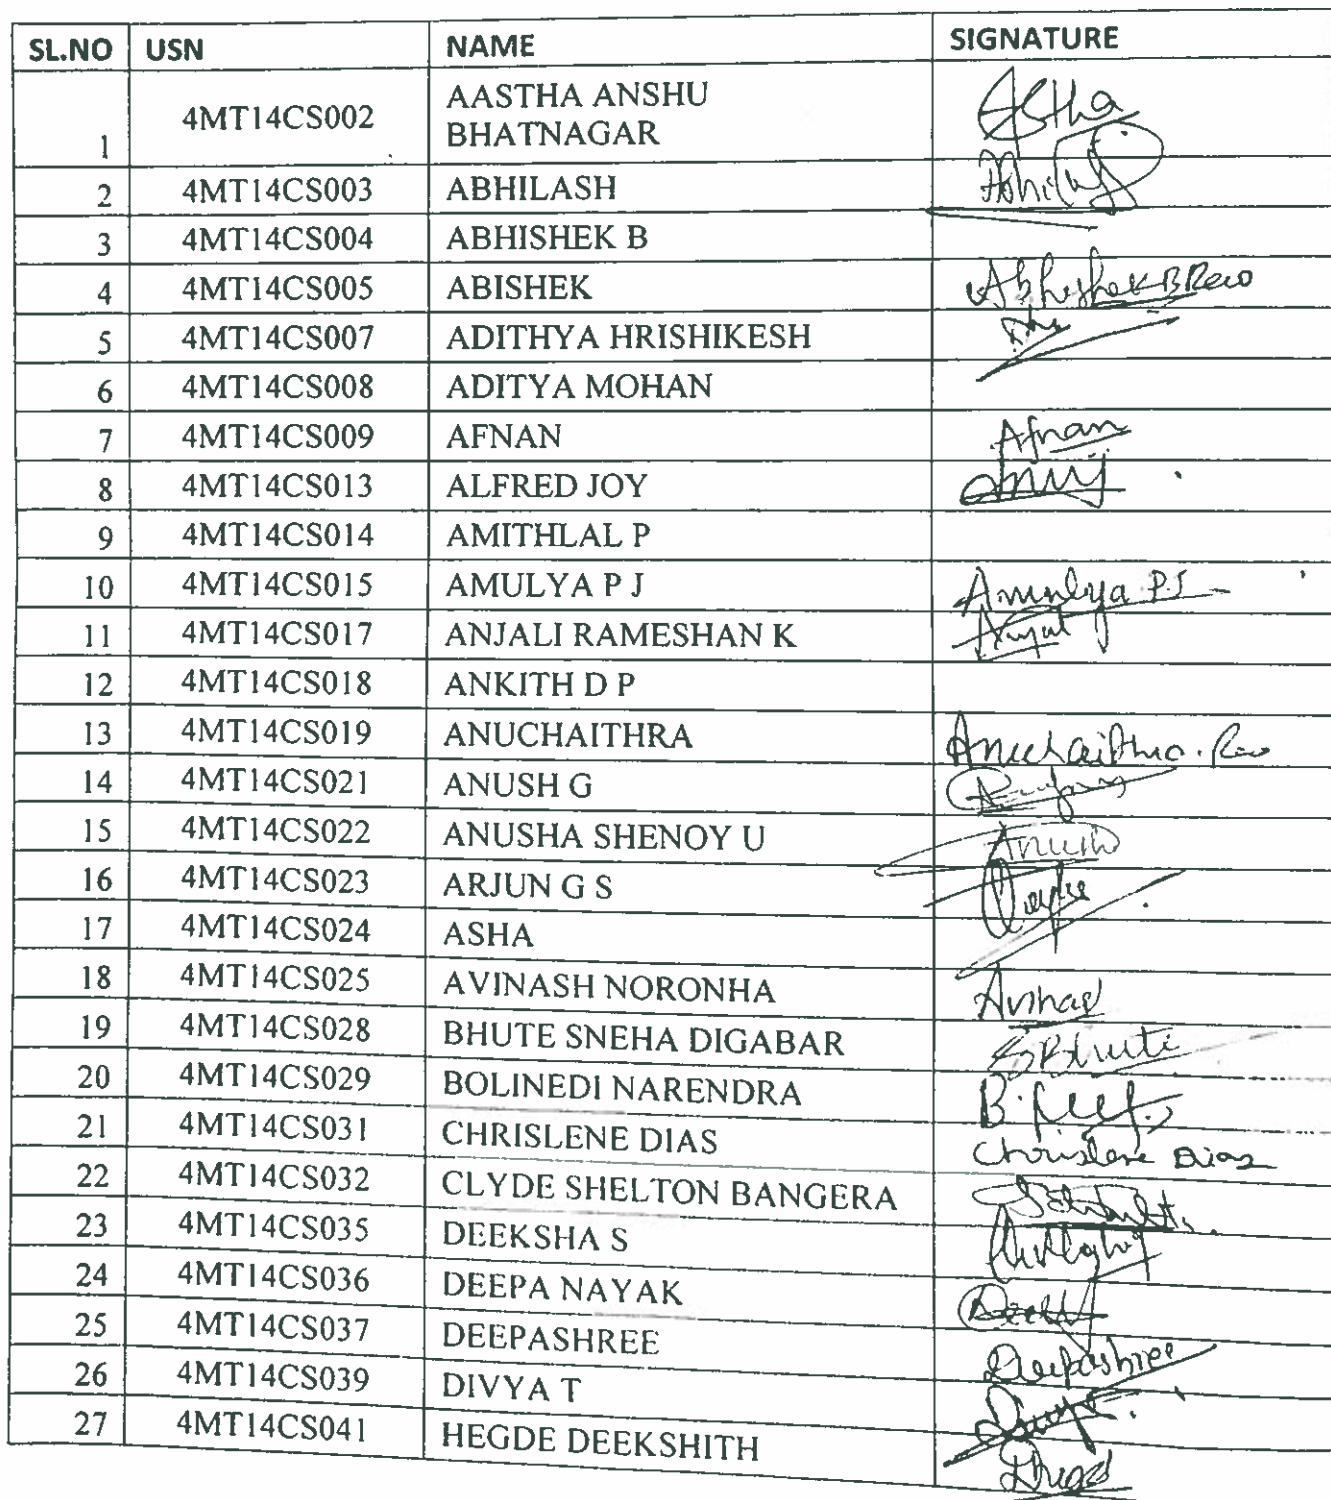 SL.NO USN NAME SIGNATURE
1 4MT14CS002 AASTHA ANSHU
BHATNAGAR
2 4MT14CS003 ABHILASH
3 4MT14CS004 ABHISHEK B
4 4MT14CS005 ABISHEK Abhishek B Rao
5 4MT14CS007 ADITHYA HRISHIKESH
6 4MT14CS008 ADITYA MOHAN
7 4MT14CS009 AFNAN Afnan
8 4MT14CS013 ALFRED JOY
9 4MT14CS014 AMITHLAL P
10 4MT14CS015 AMULYA P J Amulya P J
11 4MT14CS017 ANJALI RAMESHAN K
12 4MT14CS018 ANKITH D P
13 4MT14CS019 ANUCHAITHRA Anuchaithra. Rao
14 4MT14CS021 ANUSH G
15 4MT14CS022 ANUSHA SHENOY U
16 4MT14CS023 ARJUN G S
17 4MT14CS024 ASHA
18 4MT14CS025 AVINASH NORONHA
19 4MT14CS028 BHUTE SNEHA DIGABAR SBhute
20 4MT14CS029 BOLINEDI NARENDRA
21 4MT14CS031 CHRISLENE DIAS Chrislene Dias
22 4MT14CS032 CLYDE SHELTON BANGERA
23 4MT14CS035 DEEKSHA S
24 4MT14CS036 DEEPA NAYAK
25 4MT14CS037 DEEPASHREE Deepashree
26 4MT14CS039 DIVYA T
27 4MT14CS041 HEGDE DEEKSHITH